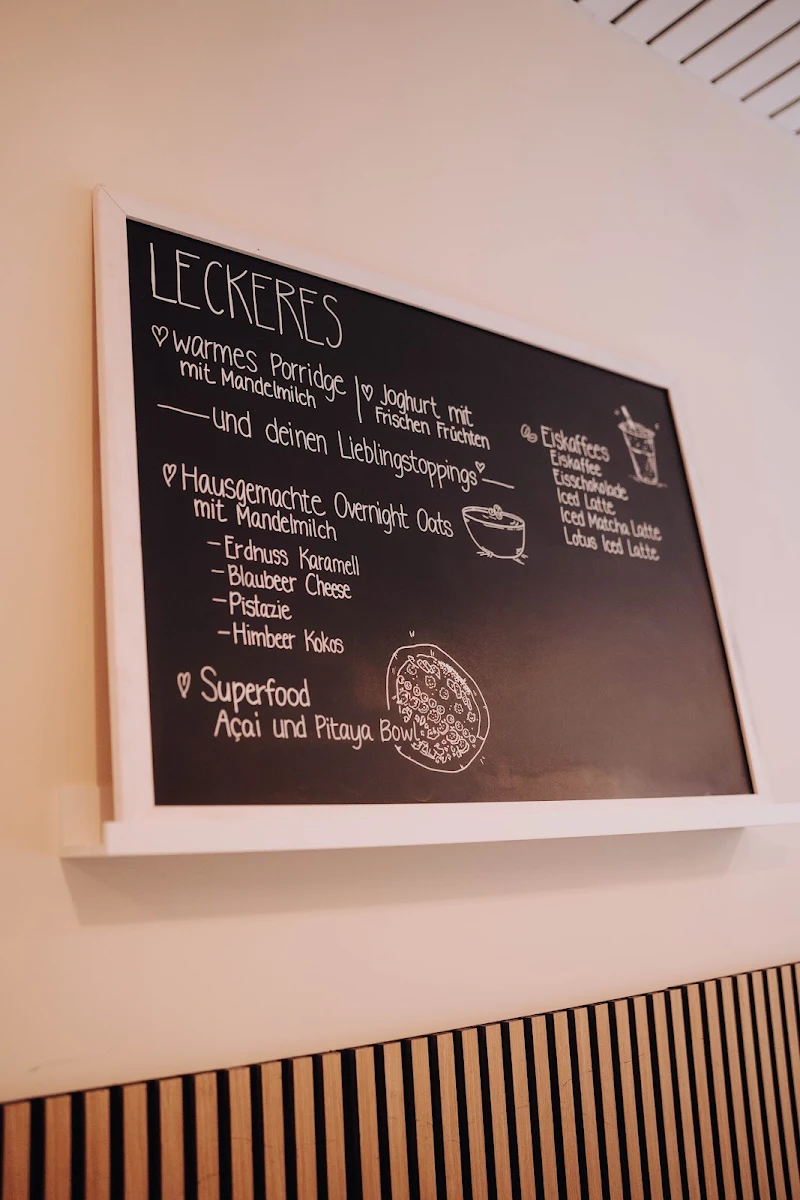 LECKERES
warmes Porridge
mit Mandelmilch
Joghurt mit
Frischen Früchten
und deinen Lieblingstoppings
Hausgemachte Overnight Oats
mit Mandelmilch
- Erdnuss Karamell
- Blaubeer Cheese
- Pistazie
- Himbeer Kokos
Superfood
Açai und Pitaya Bowl
Eiskaffees
Eiskaffee
Eisschokolade
Iced Latte
Iced Matcha Latte
Lotus Iced Latte